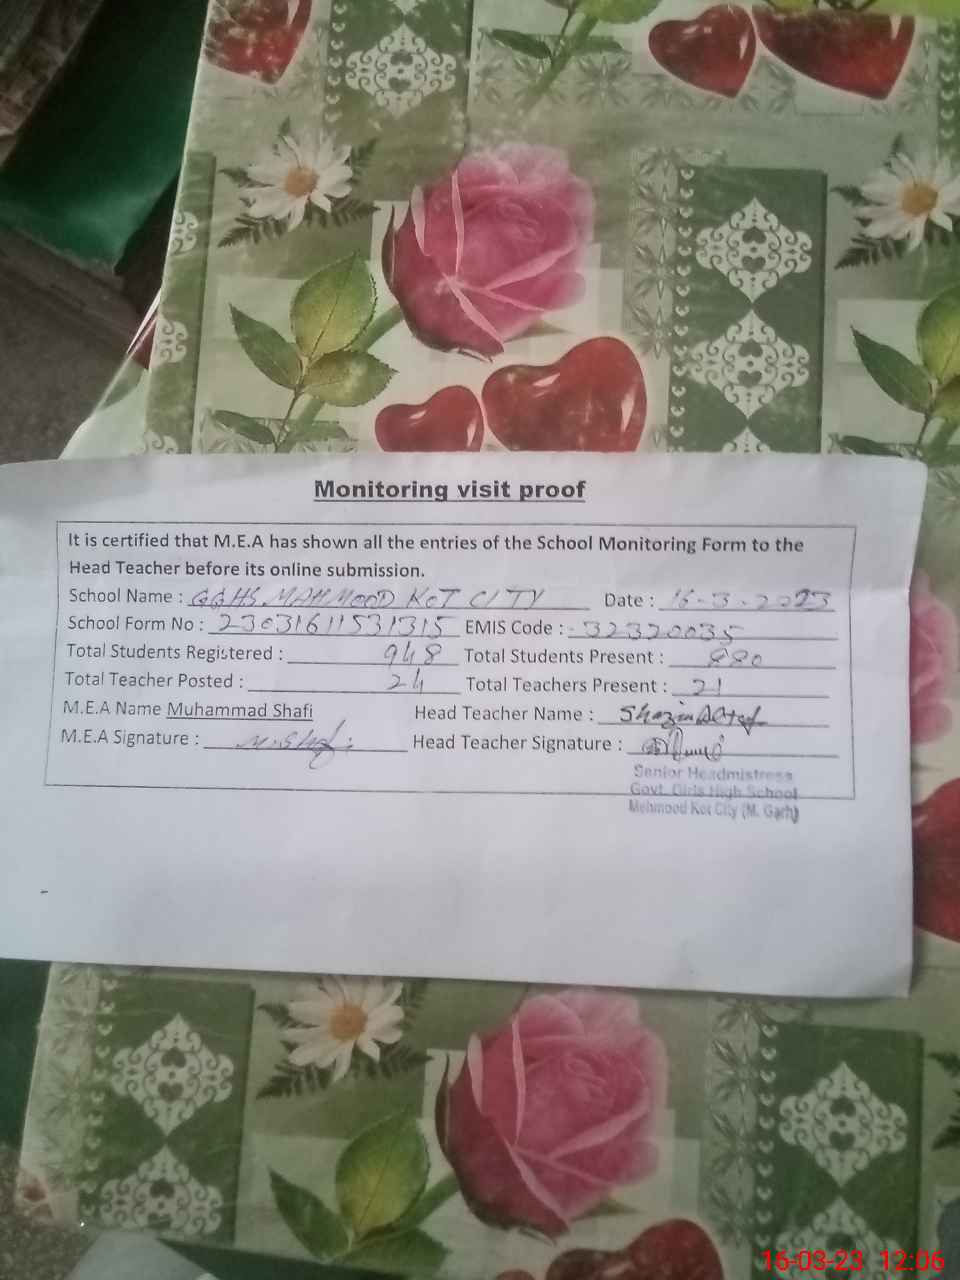 Monitoring visit proof
It is certified that M.E.A has shown all the entries of the School Monitoring Form to the
Head Teacher before its online submission.
School Name : GGHS MAHMOOD KOT CITY Date : 16-3-2023
School Form No : 23031611531315 EMIS Code : 32320035
Total Students Registered : 948 Total Students Present : 880
Total Teacher Posted : 24 Total Teachers Present : 21
M.E.A Name Muhammad Shafi Head Teacher Name : Shazia
M.E.A Signature : M.Shafi Head Teacher Signature :
Senior Headmistress
Govt. Girls High School
Mehmood Kot City (M. Garh)
16-03-23 12:06